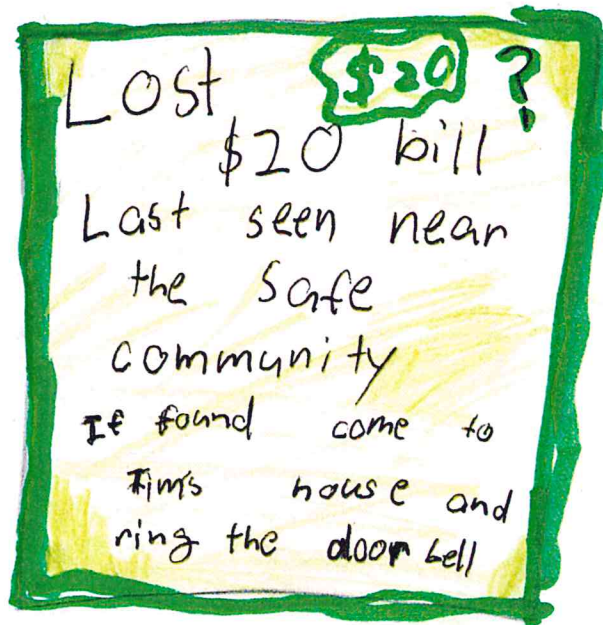 Lost $20 ?
$20 bill
Last seen near
the Safe
community
If found come to
Tim's house and
ring the door bell